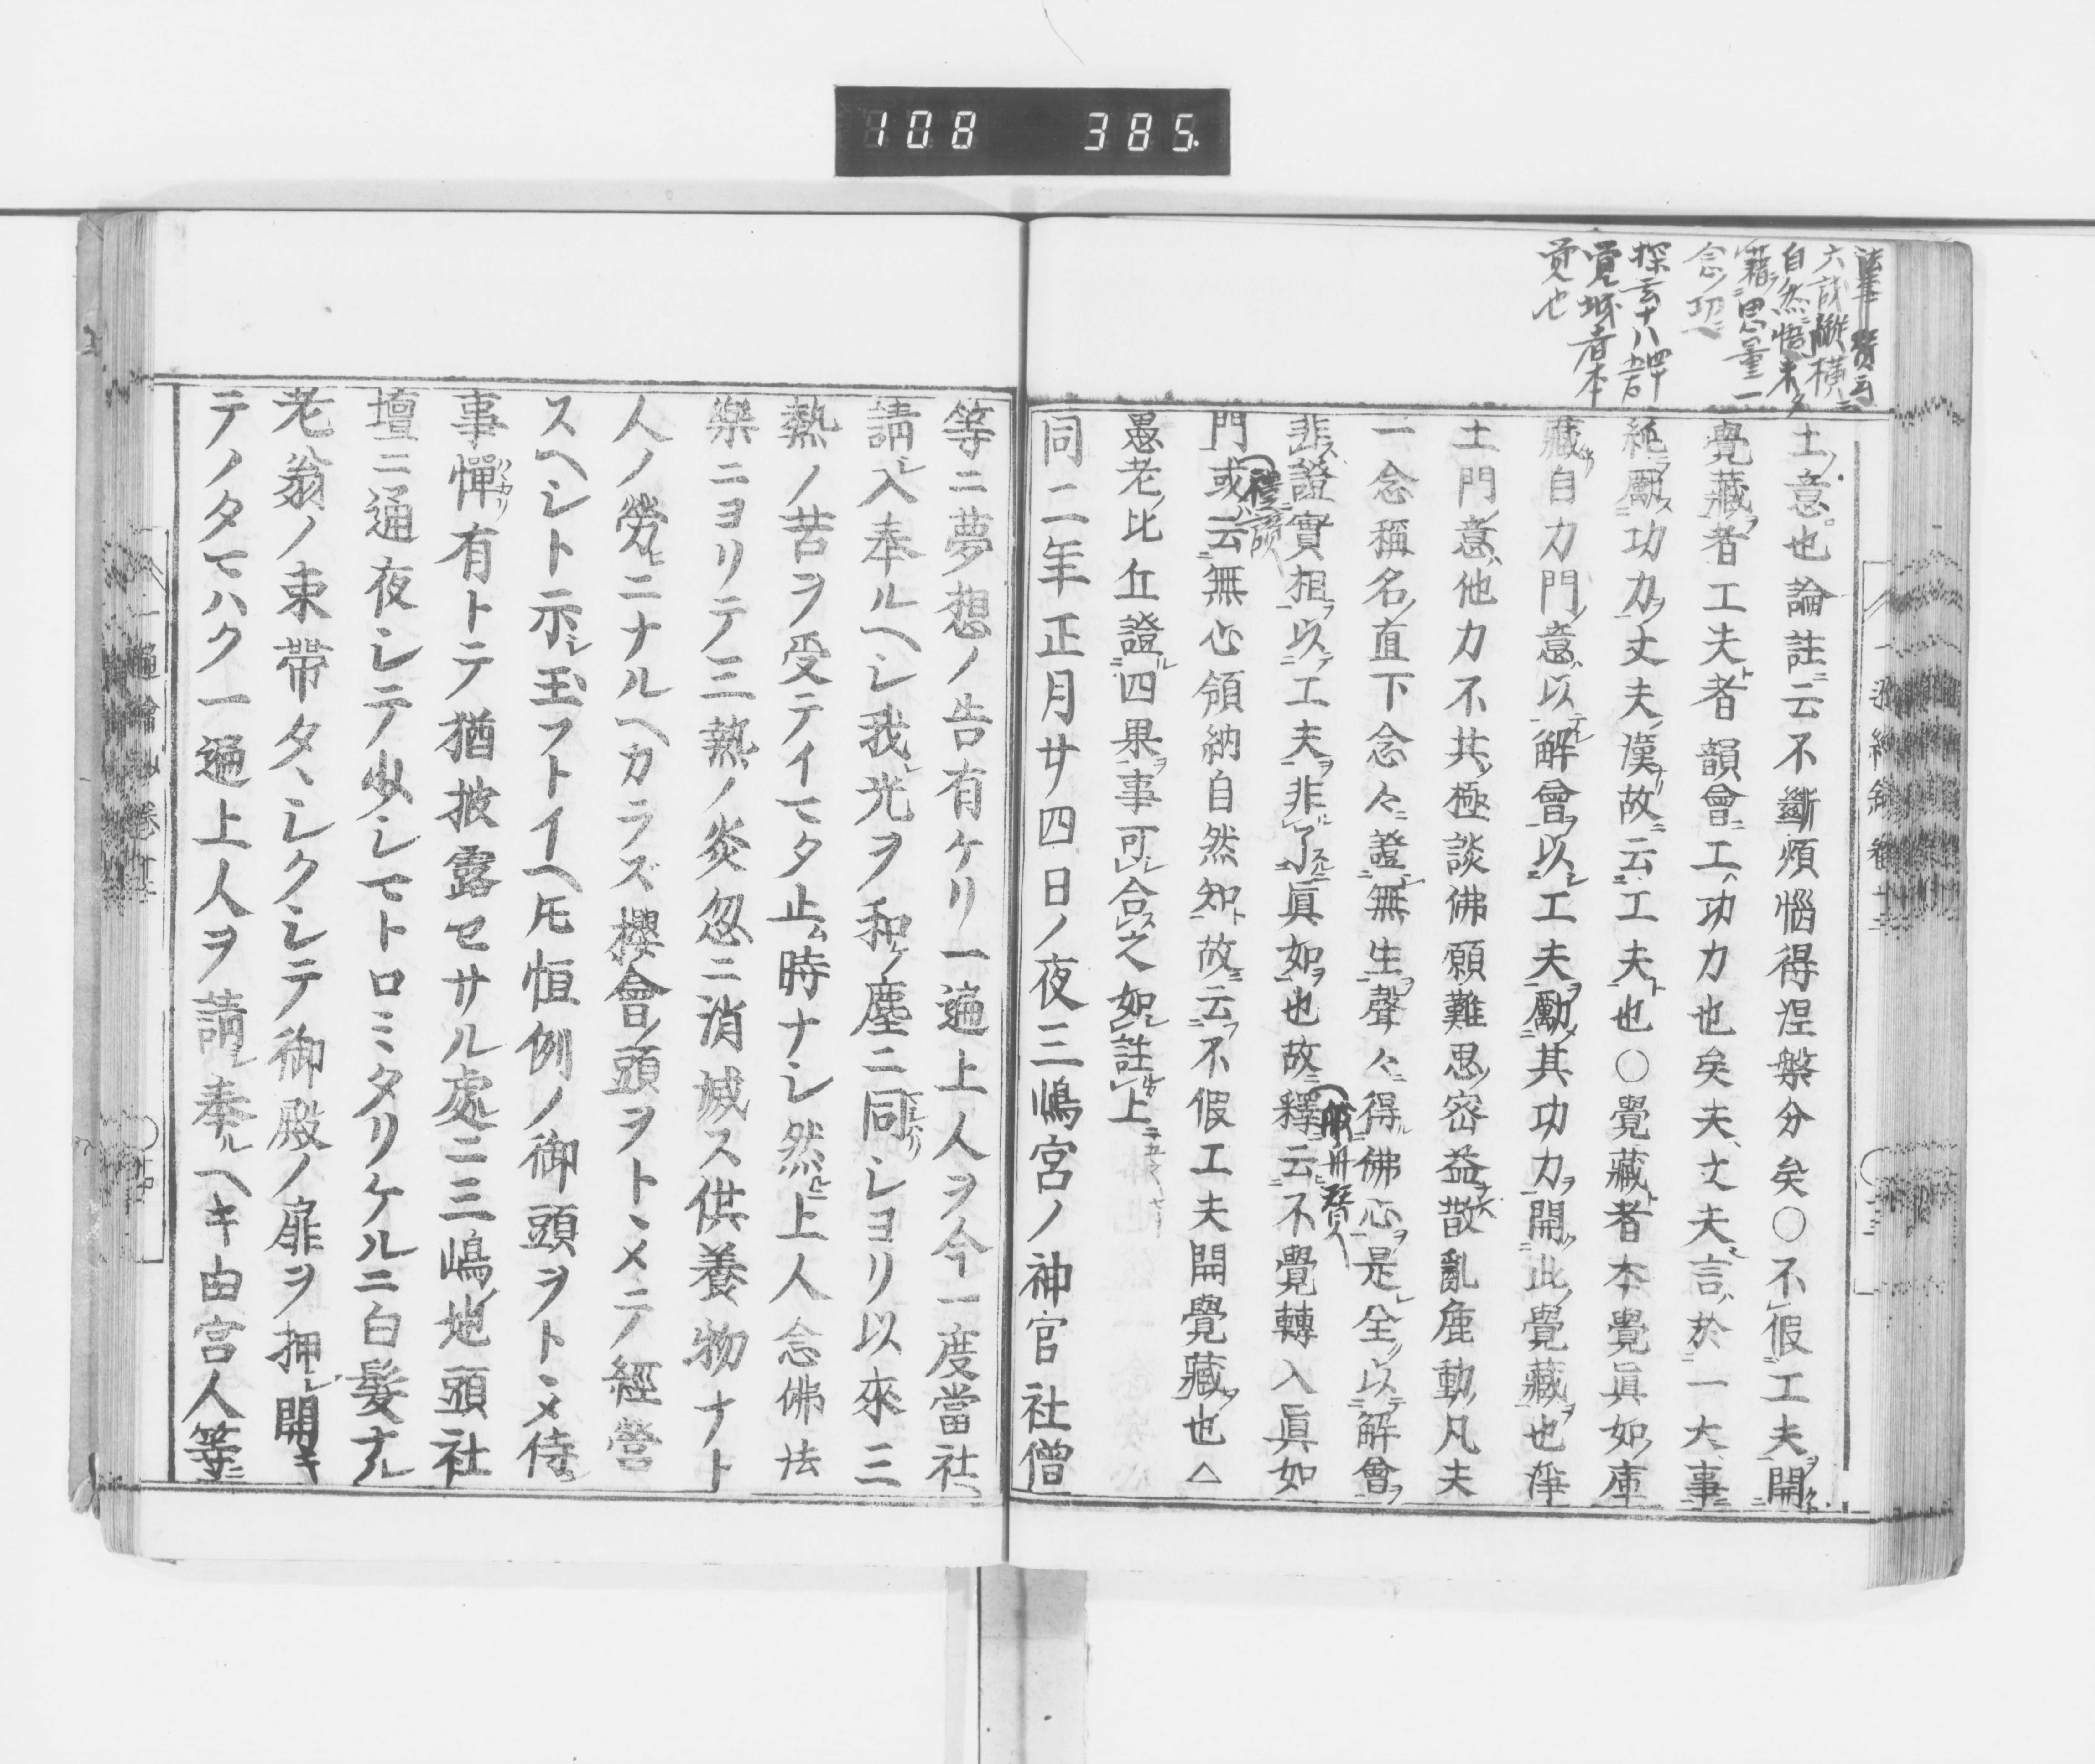 108 385.
自然悟
思量一
念
探玄十八
覺城者本
覚也
土意也論註云不斷煩惱得涅槃分矣〇不假工夫開
覺藏者工夫者韻會工功力也矣夫丈夫言於一大事
純勵功力丈夫漢故云工夫也〇覺藏者本覺眞如庫
藏自力門意以解會以工夫勵其功力開此覺藏也淨
土門意他力不共極談佛願難思密益散亂麁動凡夫
一念稱名直下念々證無生聲々得佛心是全以解會
非證實相以工夫非了眞如也故釋云不覺轉入眞如
般舟賛
門或云無心領納自然知故云不假工夫開覺藏也△
禮讃
愚老比丘證四果事可合之如註上
同二年正月廿四日ノ夜三嶋宮ノ神官社僧
等ニ夢想ノ告有ケリ一遍上人ヲ今一度當社ヘ
請入奉ルヘシ我光ヲ和ケ塵ニ同シヨリ以來三
熱ノ苦ヲ受テイマタ止ム時ナシ然ルニ上人念佛法
樂ニヨリテ三熱ノ炎忽ニ消滅ス供養物ナト
人ノ勞ニナルヘカラズ櫻會ノ頭ヲトヽメテ經營
スヘシト示シ玉フトイヘ𪜈恒例ノ御頭ヲトヽメ侍
事憚有トテ猶披露セサル處ニ三嶋ノ地頭社
壇ニ通夜シテ少シマトロミタリケルニ白髮ナル
老翁ノ束帶タヽシクシテ御殿ノ扉ヲ押シ開キ
テノタマハク一遍上人ヲ請シ奉ルヘキ由宮人等ニ
一遍繪詞卷十二